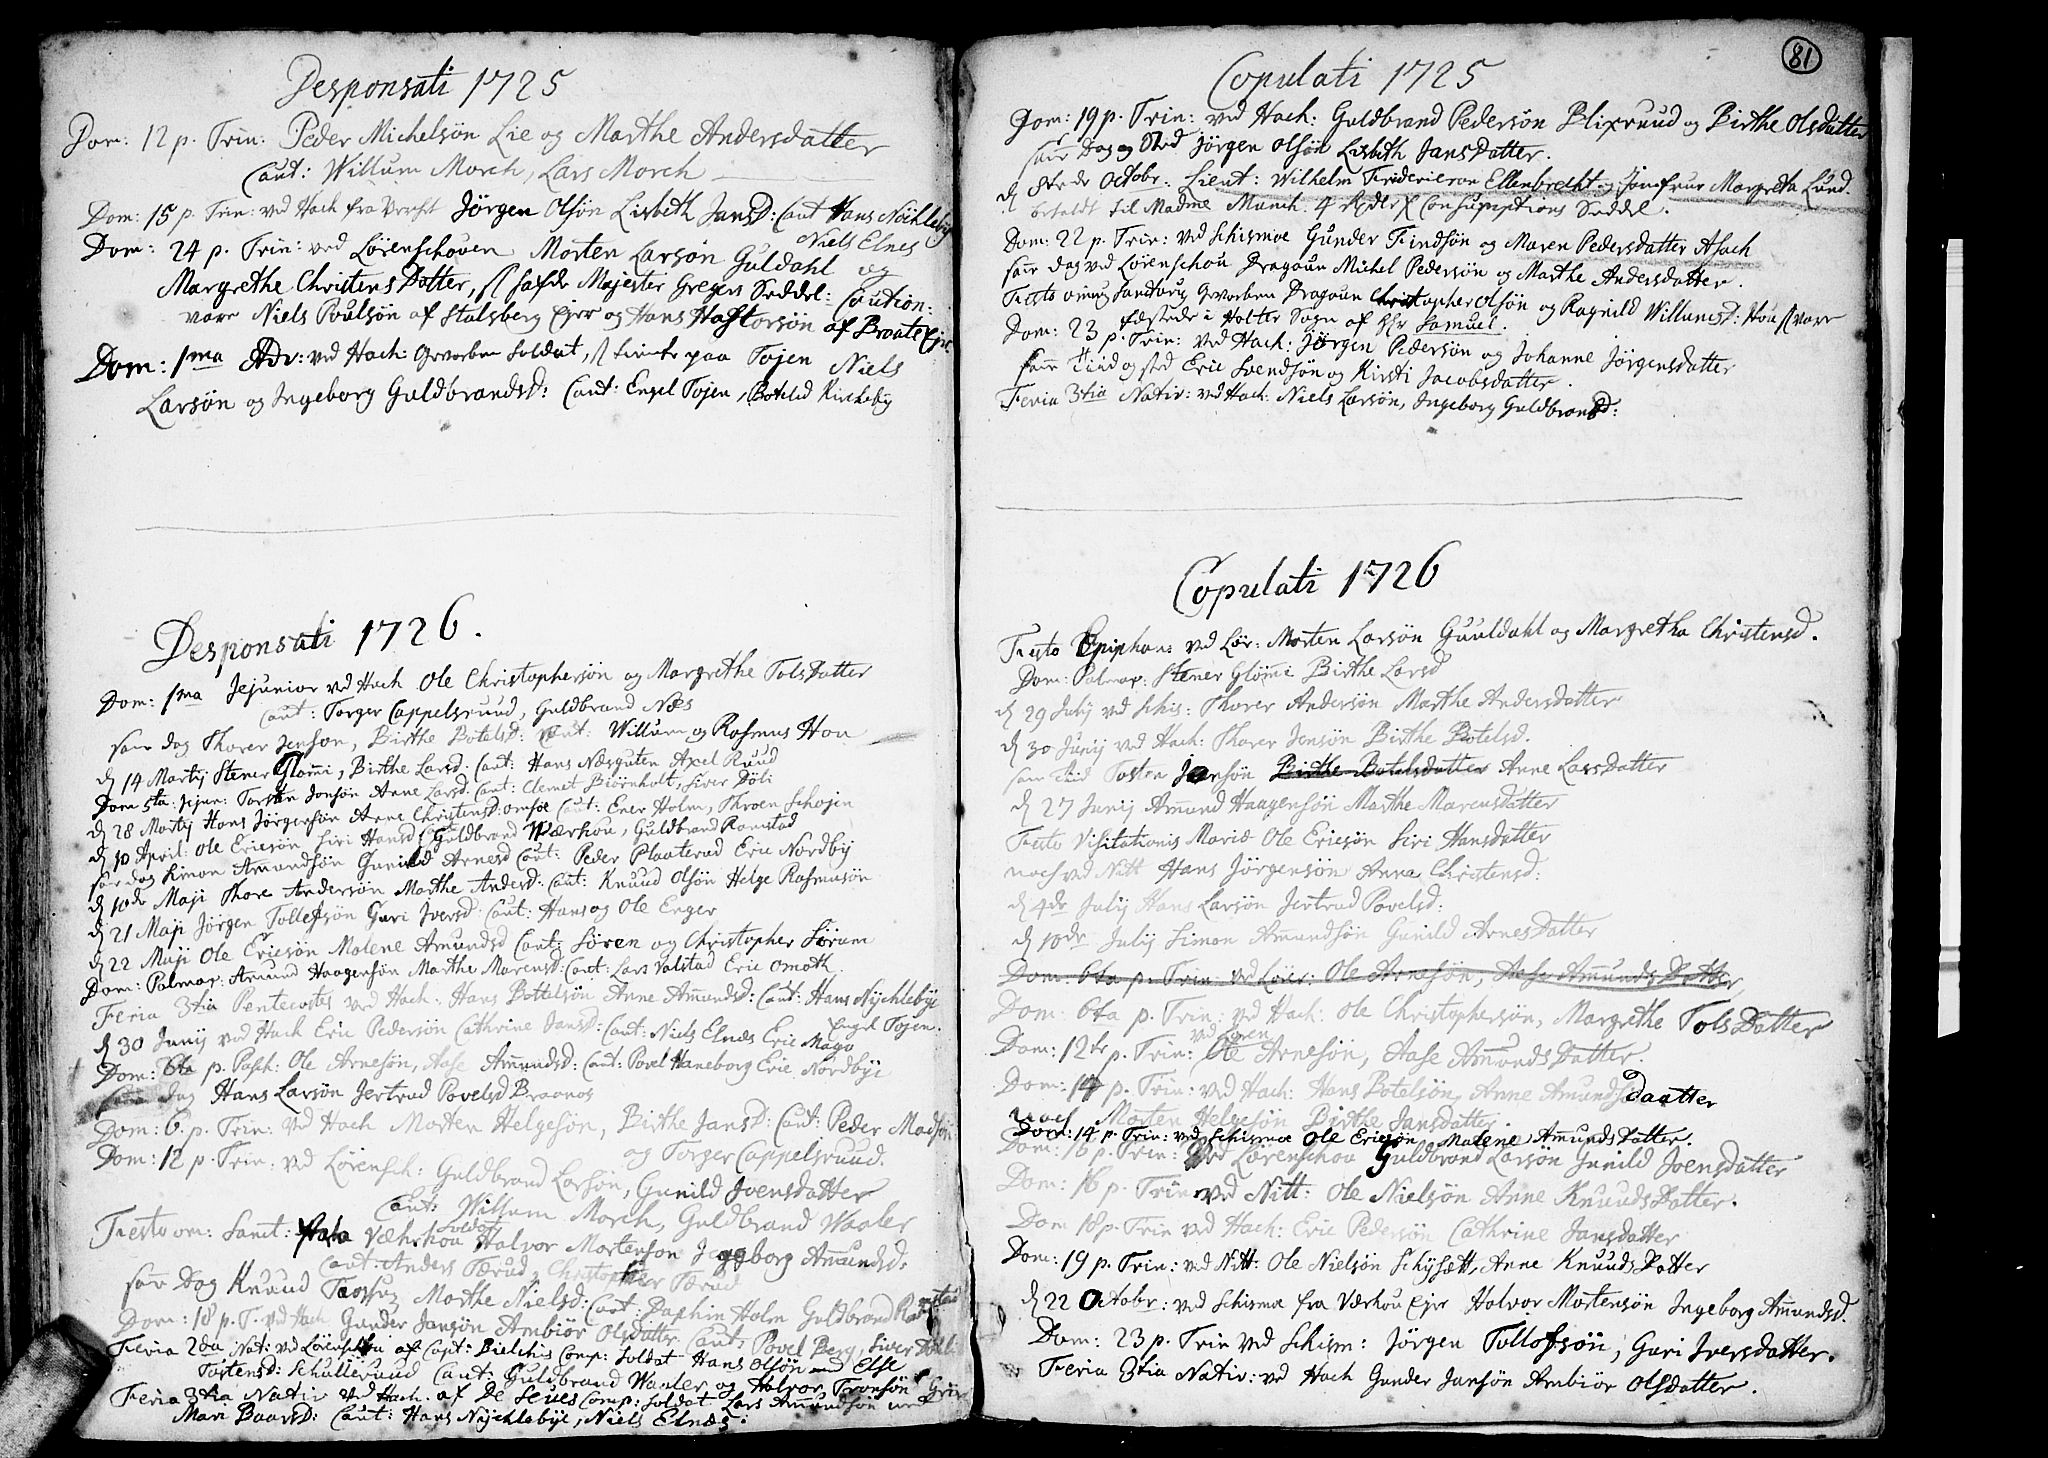 Desponsati 1725
Dom: 12 p. Trin: Peder Michelsøn Lie og Marthe Andersdatter
Caut: Willum Morch, Lars Morch
Dom: 15 p. Trin: ved Hach fra Jørgen Olsøn Lisbeth Jansd: Caut Hans Nøchleby
Niels Elnes
Dom: 24 p. Trin: ved Lørenschouen Morten Larsøn Guldahl og
Margrethe Christens Datter, Majester Gregers Seddel: Caution:
vare Niels Poulsøn af Stalsberg Ejer og Hans Haftorsøn af Braate Ejer
Dom: 1ma Adv: ved Hach: Gevorben Soldat, paa Tøjen Niels
Larsøn og Ingeborg Guldbrandsd: Caut: Engel Tøjen, Boteled Kirckeby
Desponsati 1726.
Dom: 1ma Jejunior ved Hach Ole Christophersøn og Margrethe Tolsdatter
Caut: Torger Cappelsruud, Guldbrand Næs
sair dag Thorer Jenson, Birthe Botelsd: Caut: Willum og Rasmus Hou
d 14 Martij Stener Glomi, Birthe Larsd: Caut: Hans Næsguten Axel Ruud
Dom 5ta: Jejun: Torsten Jonsøn Anne Larsd: Caut: Clemet Biørnholt, Siver Døli
d 28 Martij Hans Jørgensøn Anne Christensd: Caut: Ener Holm, Throen Schøjen
d 10 April: Ole Ericsøn Siri Hansd Caut Guldbrand Værhou, Guldbrand Ramstad
sair dag Simon Amundsøn Gunild Arnesd Caut: Peder Plaaterud Eric Nordby
d 10de Maji Thore Andersøn Marthe Andersd: Caut: Knuud Olsøn Helge Rasmusøn
d 21 Maji Jørgen Tollefsøn Guri Iversd: Caut: Hans og Ole Enger
d 22 Maji Ole Ericsøn Malene Amundsd Caut: Søren og Christopher Sørum
Dom: Palmar: Amund Haagensøn Marthe Marensd: Caut: Lars Valstad Eric Omoth.
Feria 3tia Pentecostes ved Hach: Hans Bottelsøn Anne Amundsd: Caut: Hans Nychlebye
Engel Tøjen.
d 30 Junij ved Hach Eric Pedersøn Cathrine Jansd: Caut: Niels Elnes Eric Mago
Dom: 6ta p. Pasch: Ole Arnesøn, Aase Amundsd: Caut: Povel Haneborg Eric Nordbye
dag Hans Larsøn Jertrud Povelsd Braanos
Dom: 6. p. Trin: ved Hach Morten Helgesøn, Birthe Jansd: Caut: Peder Madsøn
og Torger Cappelsruud.
Dom: 12 p. Trin: ved Lørensch: Guldbrand Larsøn, Gunild Joensdatter
Caut: Willum Morch, Guldbrand Waaler
Festo om: Sanct: fra Væhrhou Soldat Halvor Mortenson Ingeborg Amundsd.
Caut: Anders Tærud, Christopher Tærud
sair Dag Knuud Marthe Nielsd: Caut: Daphin Holm Guldbrand Ramstad
Dom: 18 p. T. ved Hach Gunder Jansøn Ambiør Olsdatter Caut: Povel Berg, Siver Døli
Feria 2da Nat: ved Lørenschou af Capt: Bielchis Comp: Soldat Hans Olsøn med Else
Tostensd: Schullerud Caut: Guldbrand Waaler og Halvor Tronsøn
Feria 3tia Nativ ved Hach. af De Seues Comp: Soldat Lars Amundsøn med
Mari Baarsd: Caut: Hans Nychlebye, Niels Elnæs.
81
Copulati 1725
Dom: 19 p. Trin: ved Hach: Guldbrand Pedersøn Blixruud og Birthe Olsdatter
sair Dag og Sted Jørgen Olsøn Lisbeth Jansdatter.
d 8de Octobr. Lieut: Wilhelm Ellenbrecht og Jomfrue Margreta Lund.
betalt til Madme Munch 4 Consumptions Seddel.
Dom: 22 p. Trin: ved Schismoe Gunder Findsøn og Maren Pedersdatter Asach
sair dag ved Lørenschou Dragoun Michel Pedersøn og Marthe Andersdatter.
Festo omn Sanctorum Gevorben Dragoun Christopher Olsøn og Ragnild Willumsd: Hou vare
fæstede i Holter Sogn af Hr Samuel.
Dom: 23 p. Trin: ved Hach: Jørgen Pedersøn og Johanne Jørgensdatter
sair Tiid og sted Eric Svendsøn og Kirsti Jacobsdatter.
Feria 3tia Nativ: ved Hach: Niels Larsøn, Ingeborg Guldbrandsd:
Copulati 1726
Festo Epiphan: ved Lør: Morten Larsøn Guuldahl og Margretha Christensd.
Dom: Palmar: Stener Glomi Birthe Larsd
d 29 July ved Schis: Thorer Andersøn Marthe Andersdatter
d 30 Junij ved Hach: Thorer Jensøn Birthe Botelsd.
sair Tiid Tosten Jonsøn Birthe Botelsdatter Anne Larsdatter
d 27 Junij Amund Haagensøn Marthe Marensdatter
Festo Visitationis Mariæ Ole Ericsøn Siri Hansdatter
noch ved Nitt Hans Jørgensøn Anna Christensd:
d 4de July Hans Larsøn Jertrud Povelsd:
d 10de July Simon Amundsøn Gunild Arnes Datter
Dom: 6ta p. Trin: ved Lører: Ole Arnesøn, Aase Amunds Datter
Dom: 6ta p. Trin: ved Hach: Ole Christophersøn, Margrethe Tols Datter
Dom: 12te p. Trin: ved Løren Ole Arnesøn, Aase Amunds Datter.
Dom: 14 p. Trin: ved Hach: Hans Botelsøn, Anne Amundsdaatter
noch Morten Helgesøn Birthe Jansdatter.
Dom: 14 p. Trin: ved Schismoe Ole Ericsøn Malene Amunds Datter.
Dom: 16 p. Trin: ved Lørenschou Guldbrand Larsøn Gunild Joensdatter
Dom: 16 p. Trin ved Nitt: Ole Nielsøn Anne Knuuds Datter.
Dom 18 p. Trin ved Hach: Eric Pedersøn Cathrine Jansdatter
Dom: 19 p. Trin: ved Nitt: Ole Nielsøn Schysett, Anne Knuuds Datter
d 22 Octobr: ved Schismoe fra Værhou Ejer Halvor Mortensøn Ingeborg Amundsd.
Dom: 23 p. Trin ved Schism: Jørgen Tollofsøn, Guri Iversdatter.
Feria 3tia Nativ: ved Hach Gunder Jansøn Ambiør Olsdatter.